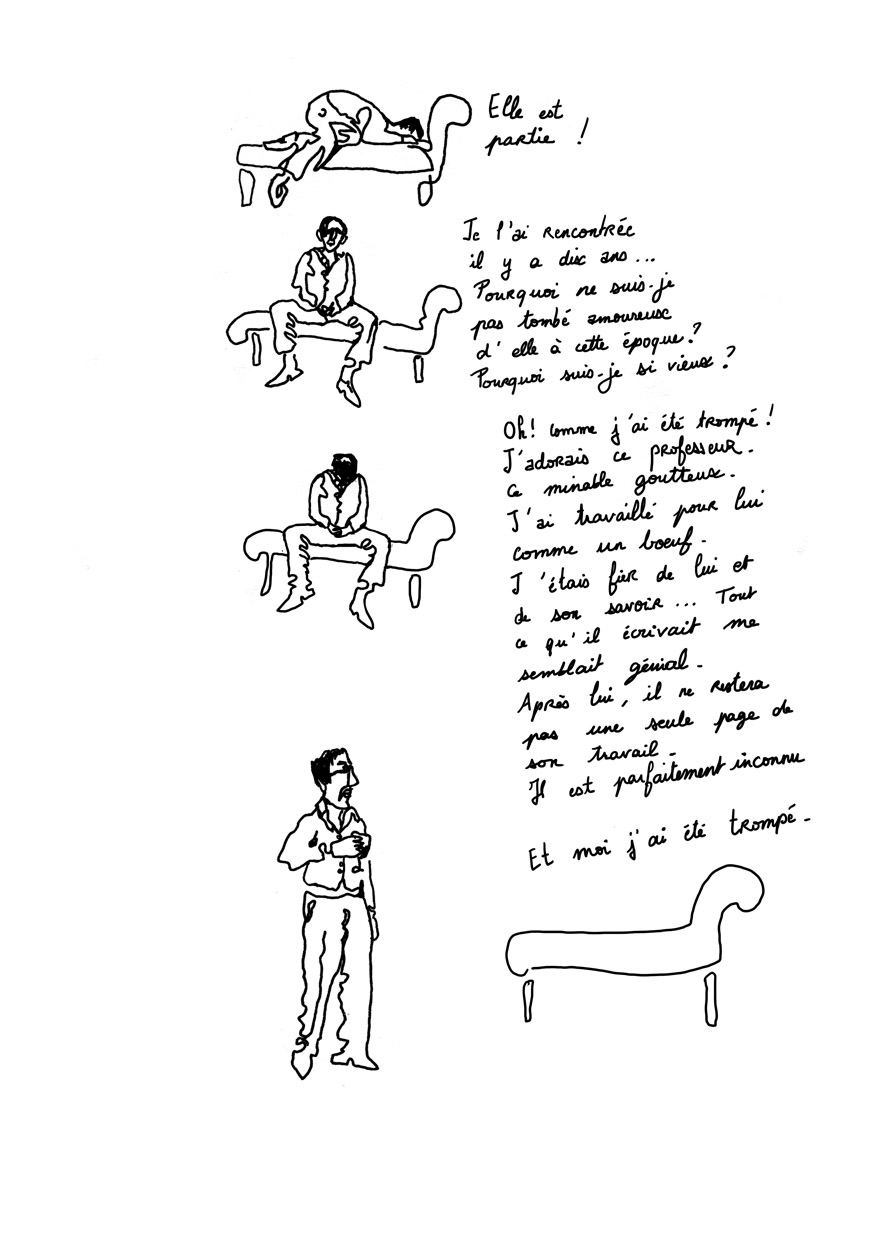 Elle est
partie !
Je l'ai rencontrée
il y a dix ans...
Pourquoi ne suis-je
pas tombé amoureux
d'elle à cette époque ?
Pourquoi suis-je si vieux ?
Oh! comme j'ai été trompé !
J'adorais ce professeur.
ce minable goutteux.
J'ai travaillé pour lui
comme un boeuf.
J'étais fier de lui et
de son savoir... Tout
ce qu'il écrivait me
semblait génial.
Après lui, il ne restera
pas une seule page de
son travail.
Il est parfaitement inconnu
Et moi j'ai été trompé.